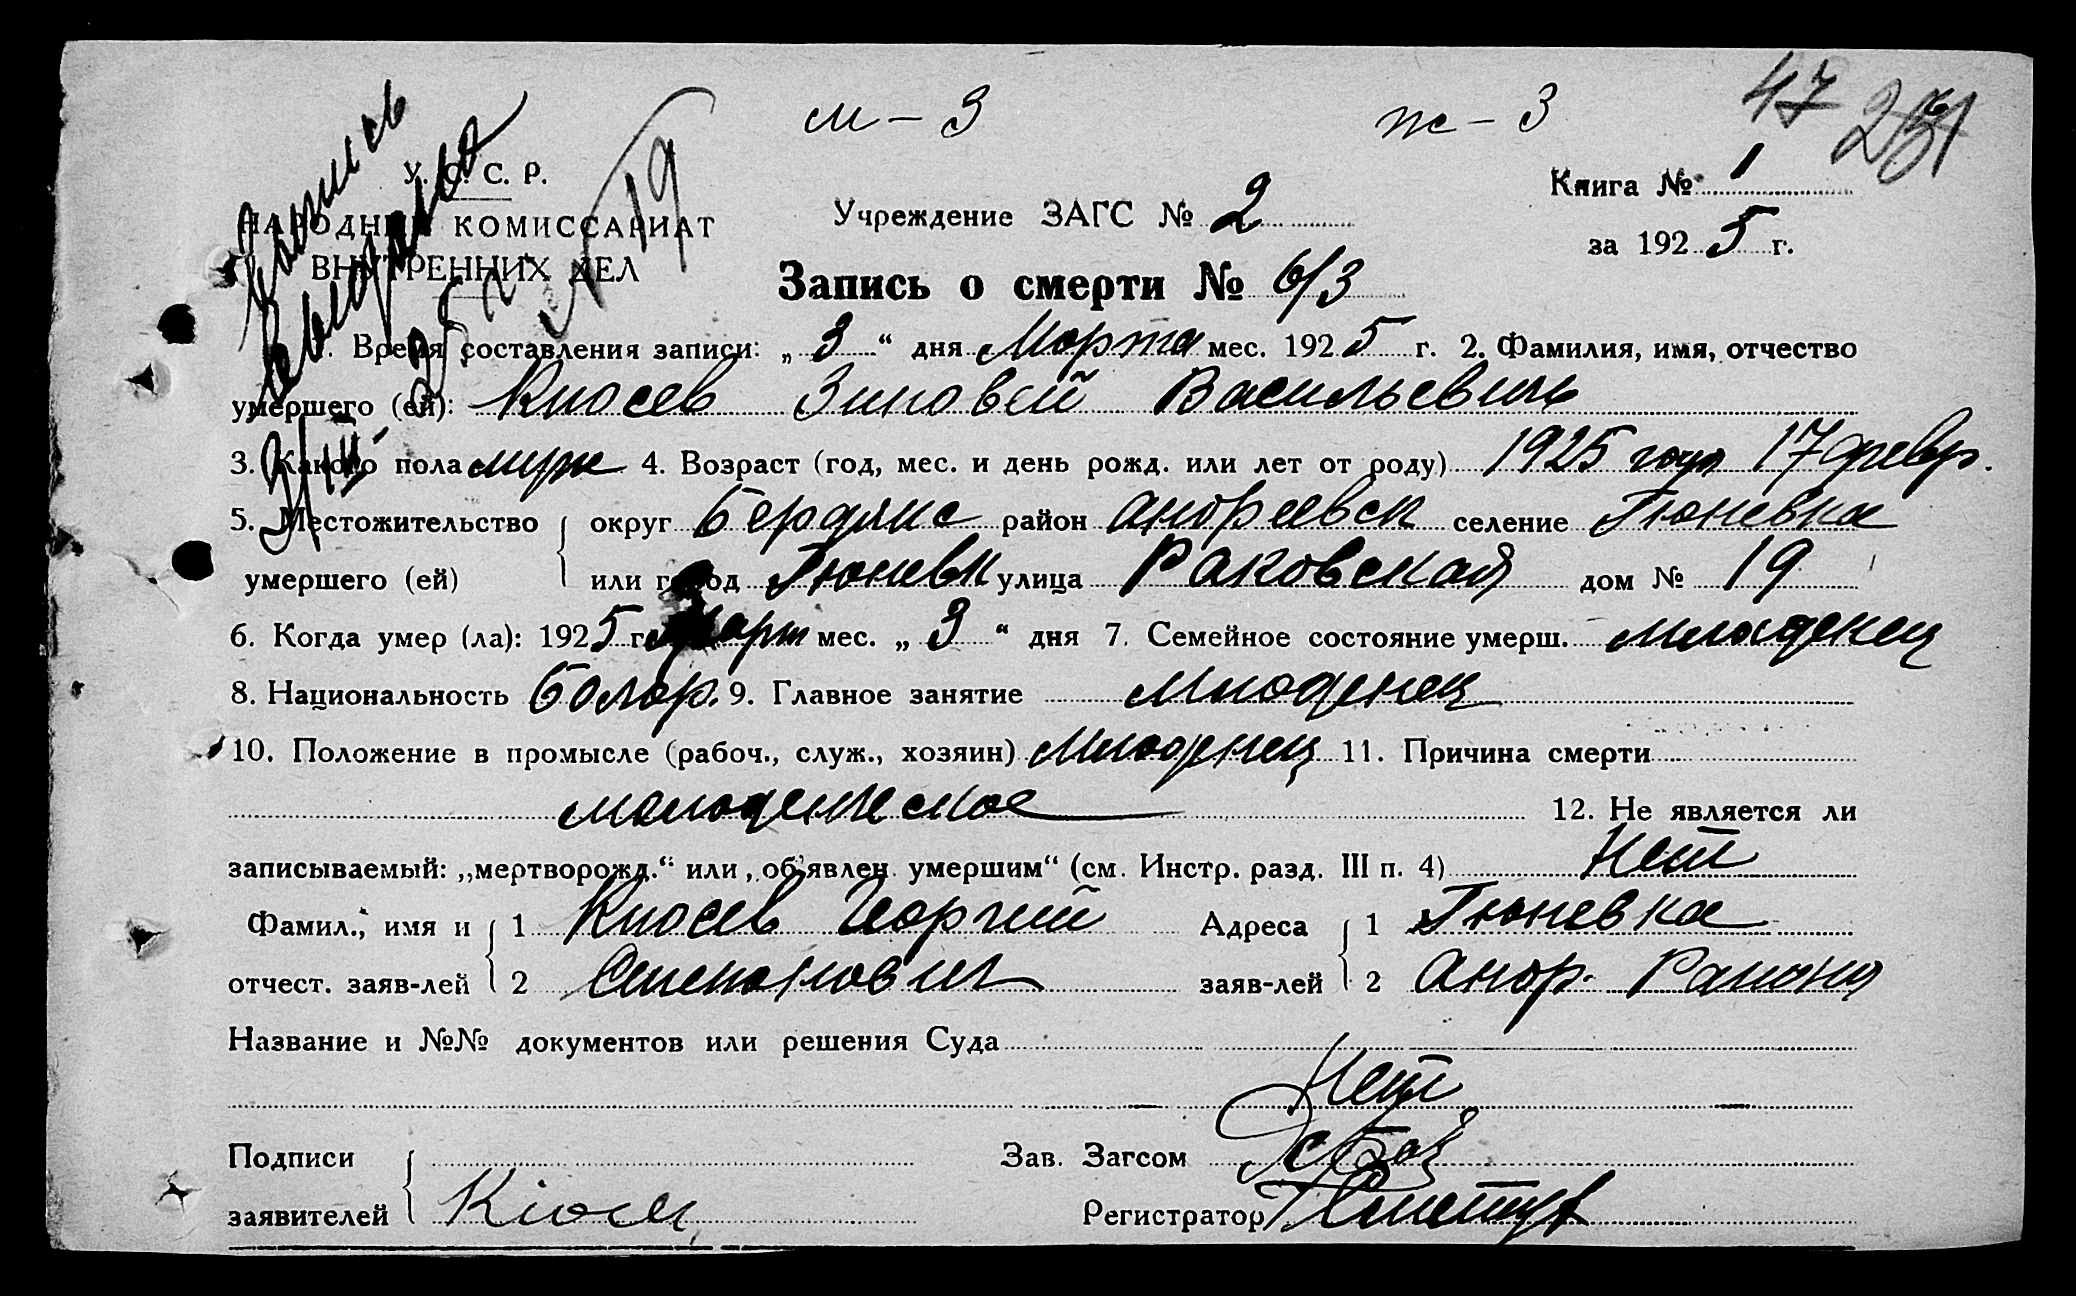 м – 3 ж – 3 47
У. С. С. Р.
НАРОДНЫЙ КОМИССАРИАТ
ВНУТРЕННИХ ДЕЛ
Учреждение ЗАГС № 2
Книга № 1
за 1925 г.
Запись о смерти № 6/3
1. Время составления записи: „3“ дня Марта мес. 1925 г. 2. Фамилия, имя, отчество
умершего (ей): Киосев Зиновей Васильевичь
3. Какого пола муж 4. Возраст (год, мес. и день рожд. или лет от роду) 1925 года 17 февр.
5. Местожительство округ Бердянс район Андреевск селение Гюневка
умершего (ей) или город Гюневк улица Раковская дом № 19
6. Когда умер (ла): 1925 г. Март мес. „3“ дня 7. Семейное состояние умерш. младенец
8. Национальность болгар. 9. Главное занятие младенец
10. Положение в промысле (рабоч., служ., хозяин) Младенец 11. Причина смерти
12. Не является ли
записываемый: „мертворожд.“ или „об'явлен умершим“ (см. Инстр. разд. III п. 4) Нет
Фамил., имя и 1 Киосев Георгий Адреса 1 Гюневка
отчест. заяв-лей 2 Степанович заяв-лей 2 Андр. Раиона
Название и №№ документов или решения Суда
Нет
Подписи Зав. Загсом
заявителей Регистратор